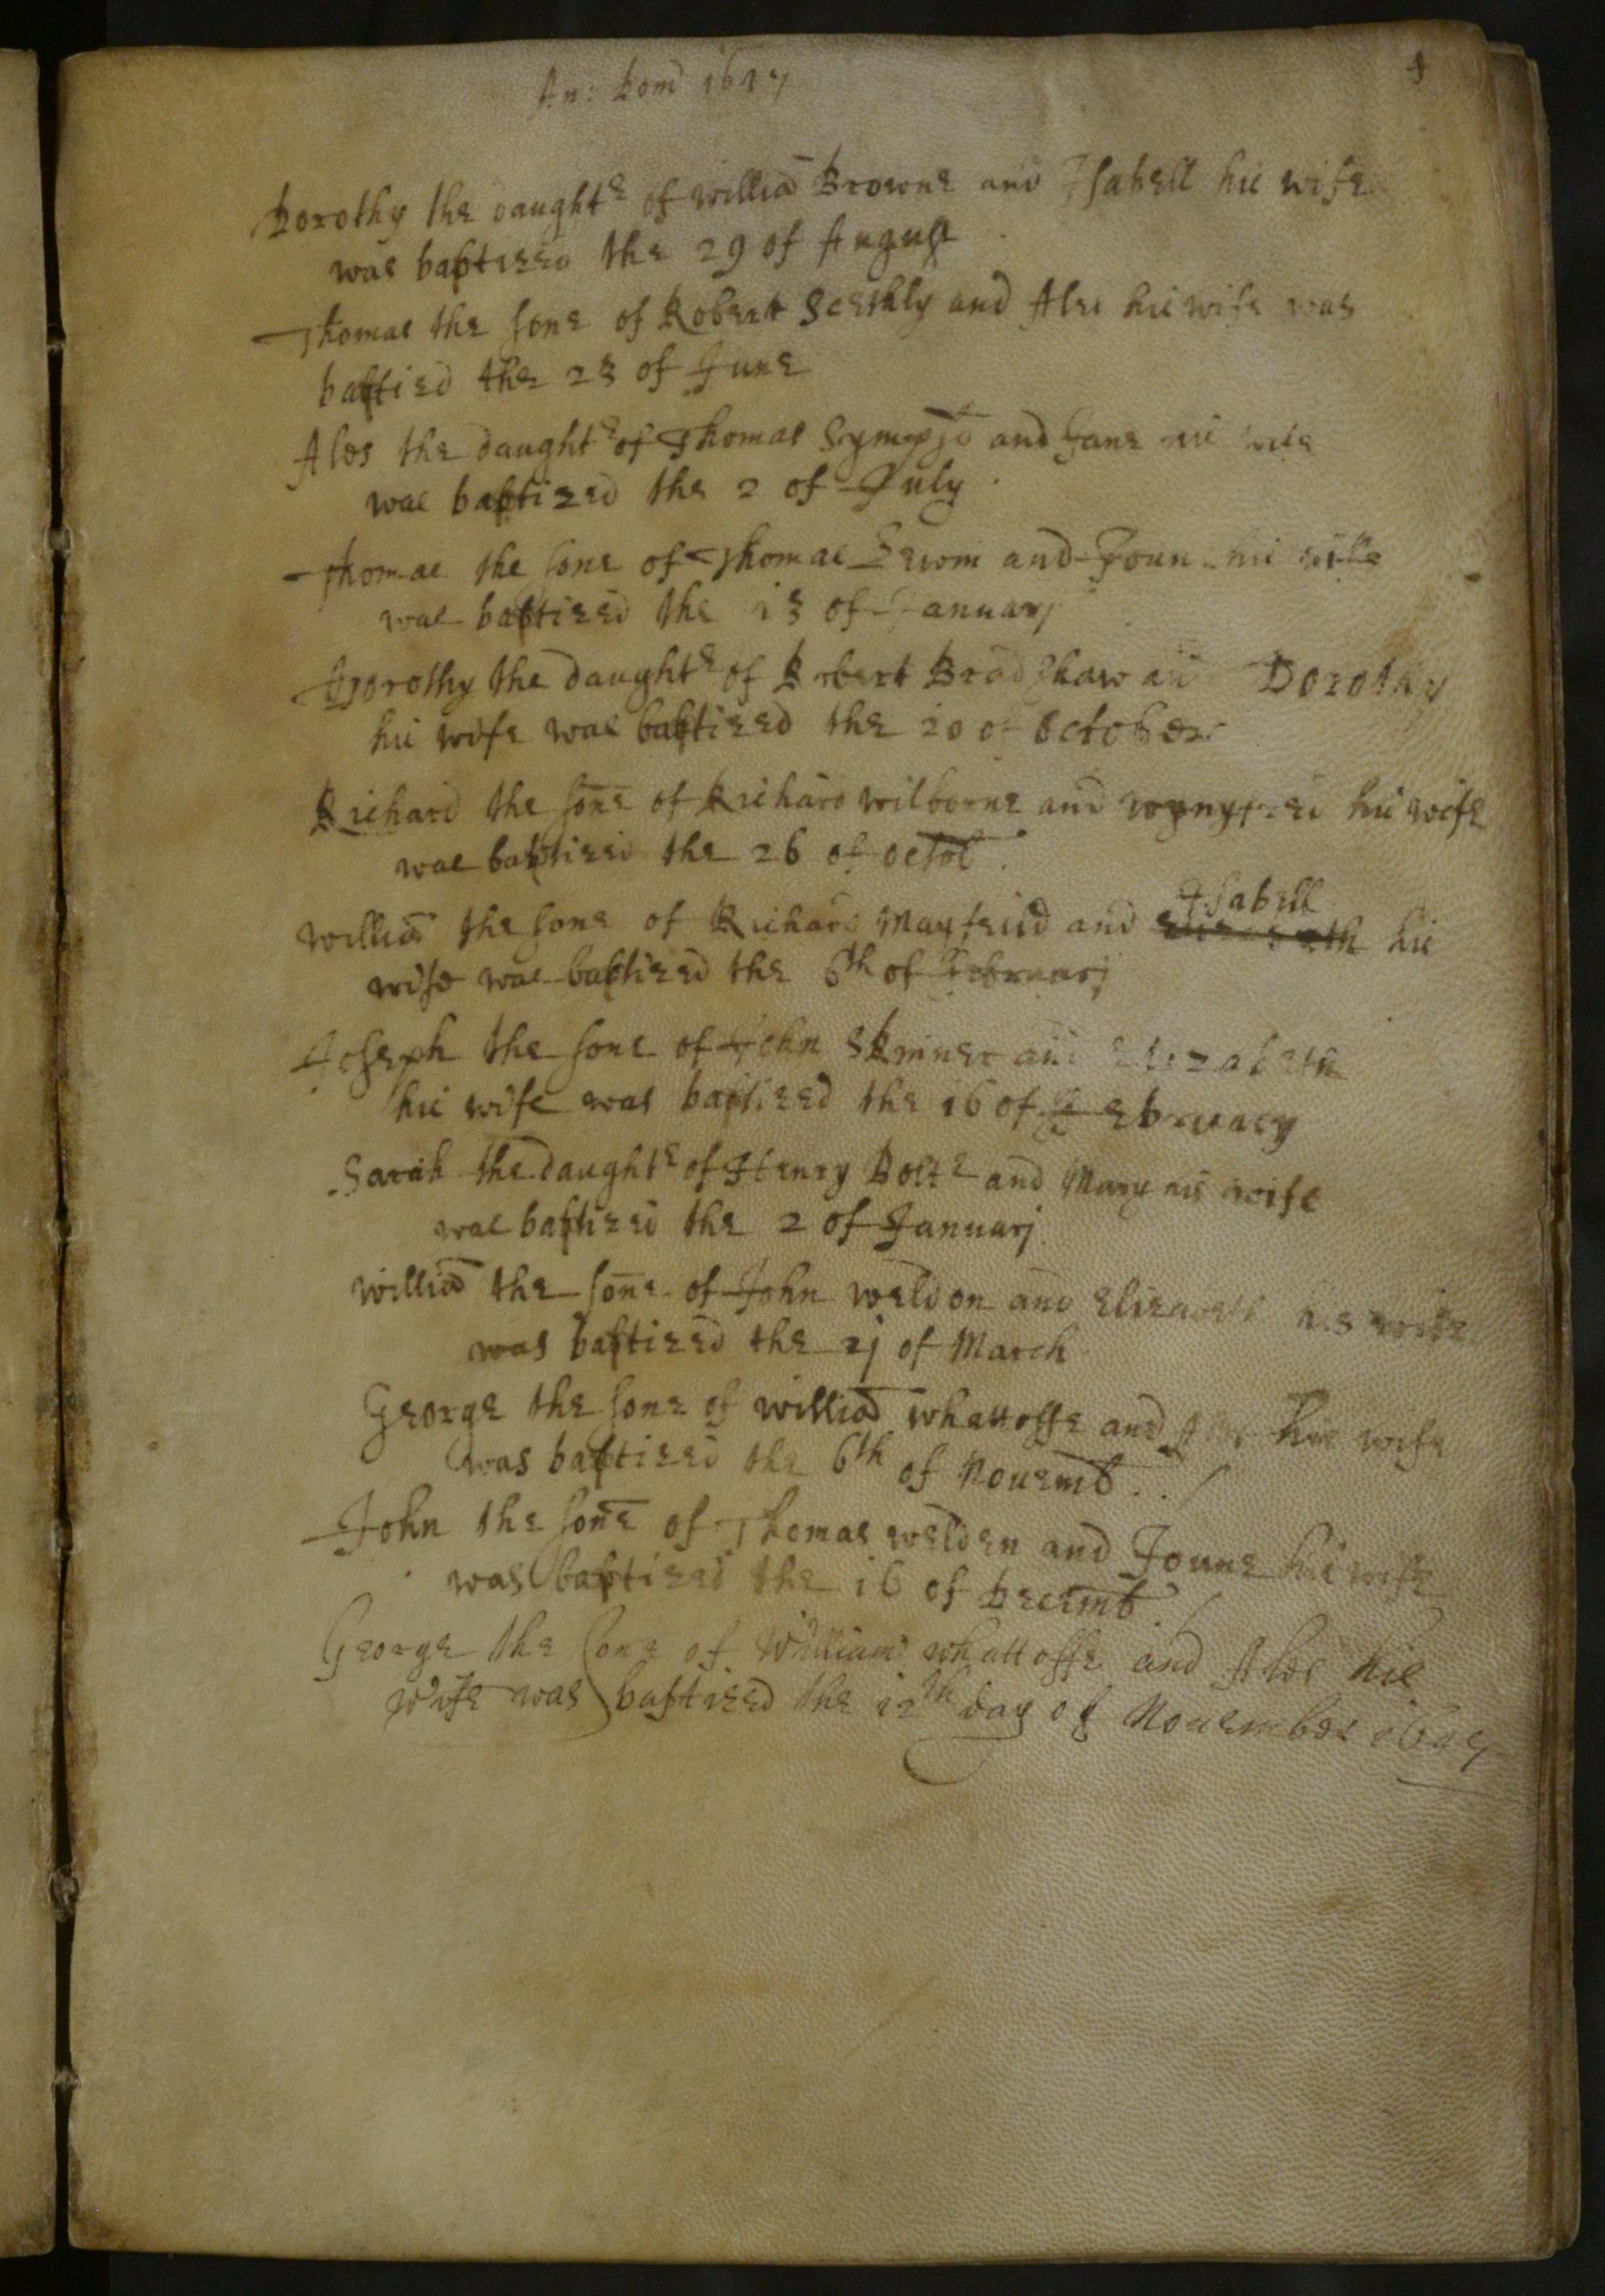 An: Dom 1647
Dorothy the daughte of Williā Browne and Isabell his wife
was baptized the 29 of August
Thomas the sone of Robert and Ales his wife was
baptied the 23 of June
Ales the daughte of Thomas Sympsō and Jane his wife
was baptized the 2 of July
Thomas the sone of Thomas and Joun his wife
was baptized the 13 of Januarj
Dorothy the daughte of Robert Bradshaw an Dorothy
his wife was baptized the 20 of October
Richard the sone of Richard Wilborne and Wynyfred his wife
was baptized the 26 of Octob
Williā the sone of Richard Mayfeild and Isabell his
wife was baptized the 6th of Februarj
Joseph the sone of John Skinner and Elezabeth
his wife was baptized the 16 of February
Sarah the daughte of Henry Bolte and Mary his wife
was baptized the 2 of Januarj
Williā the sone of John Weldon and Elizabeth his wife
was baptized the 2j of March
George the sone of Williā Whattoffe and his wife
was baptized the 6th of Nouemb
John the sone of Thomas Welden and Joune his wife
was baptized the 16 of Decemb
George the sone of William Whattoffe and Ales his
wife was baptized the 12th day of Nouember 1647